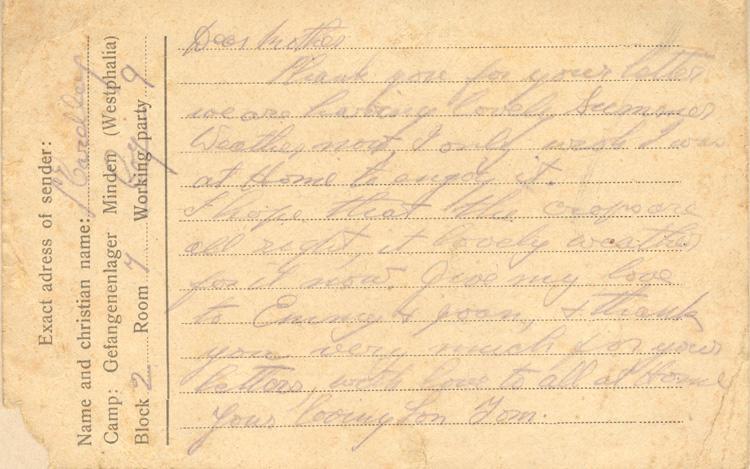 Exact adress of sender:
Name and christian name: Hardley
Camp: Gefangenenlager Minden (Westphalia)
Block 2 Room 7 Working party 9
Dear Mother
Thank you for your letter
we are having lovely Summer
Weather now, I only wish I was
at Home to enjoy it.
I hope that the crops are
all right, it lovely weather
for it now. Give my love
to Emmy & Joan, & thank
you very much for your
letters, with love to all at Home
Your loving Son Tom.